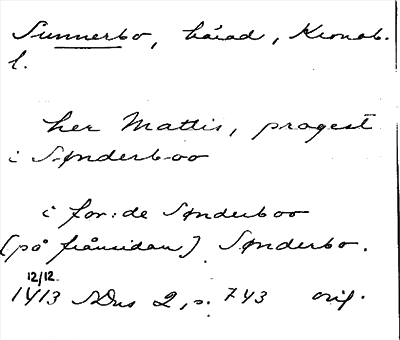 Sunnerbo, härad, Kronob.
l.
her Mattis, progest
i Sønderboo
i for:de Sønderboo
(på frånsidan) Sønderbo.
12/12.
1413 SDns 2, s. 743 orig.